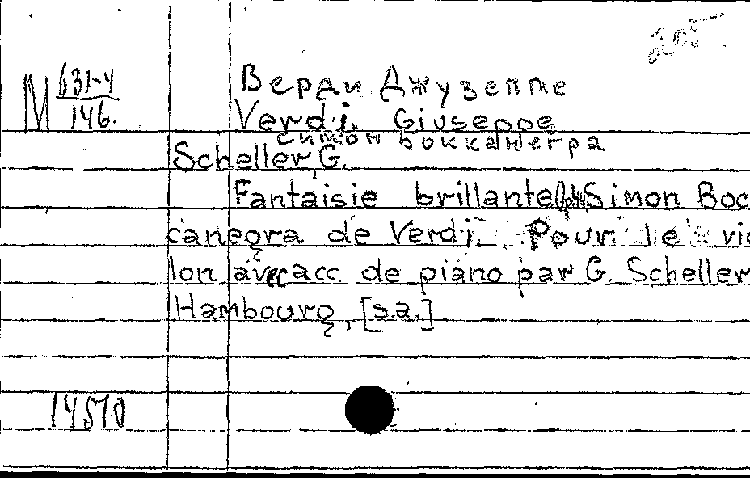 205
M 631-4
146.
Верди Джузеппе
Verdi, Giuseppe
Симон Бокканегра
Scheller, G.
Fantaisie brillante Simon Boc
canegra de Verdi. Pour le vio
lon avec acc de piano par G. Scheller
Hambourg, [s.a.]
14510